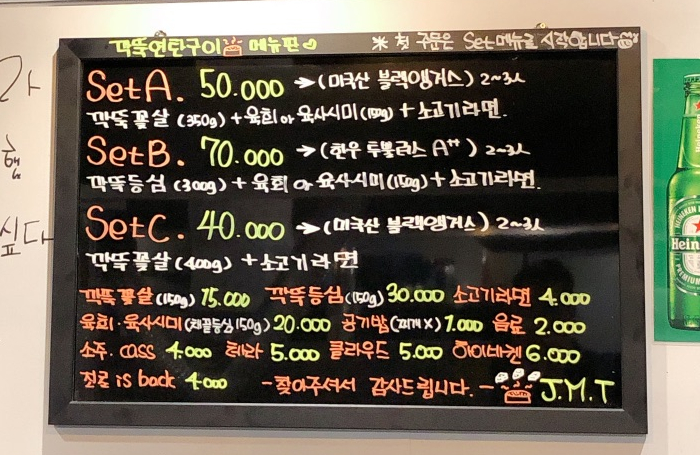 깍뚝연탄구이 메뉴판
※ 첫 주문은 Set메뉴로 시작합니다
Set A. 50.000 → (미국산 블랙앵거스) 2~3人
깍뚝꽃살 (350g) + 육회 or 육사시미 (100g) + 소고기라면.
Set B. 70.000 → (한우 투뿔러스 A++) 2~3人
깍뚝등심 (300g) + 육회 or 육사시미 (150g) + 소고기라면.
Set C. 40.000 → (미국산 블랙앵거스) 2~3人
깍뚝꽃살 (400g) + 소고기라면
깍뚝꽃살 (150g) 15.000 깍뚝등심 (150g) 30.000 소고기라면 4.000
육회·육사시미 (채끝등심 150g) 20.000 공기밥 (찌개X) 1.000 음료 2.000
소주. cass 4.000 테라 5.000 클라우드 5.000 하이네켄 6.000
진로 is back 4.000 - 찾아주셔서 감사드립니다. - J.M.T
싶다
Hein
PREMIUM